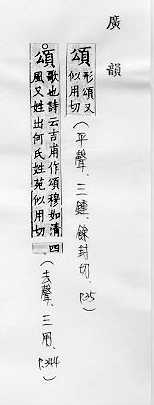 廣韻
頌形頌又似用切（平聲、三鍾、餘封切、P.35）
頌歌也詩云吉甫作頌穆如清風又姓出何氏姓苑似用切四（去聲、三用、P.344）